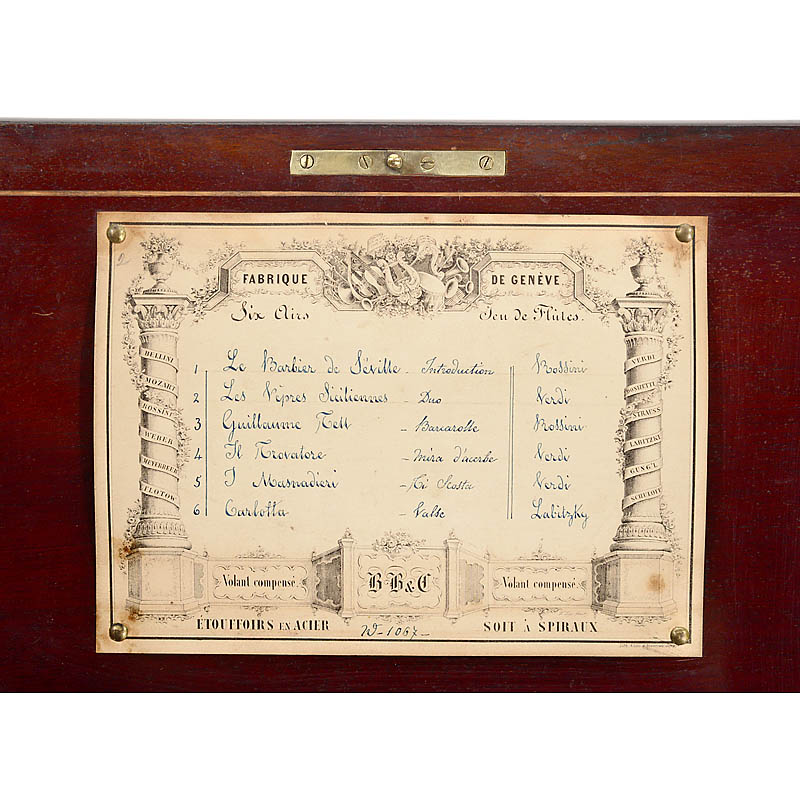 FABRIQUE DE GENÈVE
Six Airs Jeu de Flûtes.
1 Le Barbier de Séville - Introduction Rossini
2 Les Vêpres Siciliennes - Duo Verdi
3 Guillaume Tell - Barcarolle Rossini
4 Il Trovatore - Mira d'acerbe Verdi
5 I Masnadieri - Ti Scosta Verdi
6 Carlotta - Valse Labitzky
BELLINI
MOZART
ROSSINI
WEBER
MEYERBEER
FLOTOW
VERDI
DONIZETTI
STRAUSS
LABITZKI
GUNG'L
SCHULOFF
Volant compensé. B·B&C Volant compensé.
ÉTOUFFOIRS EN ACIER N-1067- SOIT À SPIRAUX